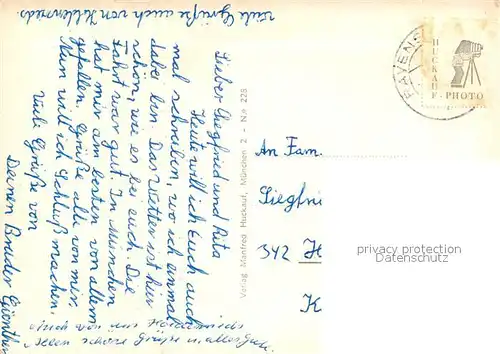 Lieber Siegfried und Rita
Heute will ich Euch auch
mal schreiben, wo ich einmal
dabei bin. Das Wetter ist hier
schön, wie es bei euch. Die
Fahrt war gut. In München
hat mir am besten von allem
gefallen. Grüße alle von mir.
Nun will ich Schluß machen.
Viele Grüße von
Deinen Bruder Günther
viele Grüße auch von
auch von
Verlag Manfred Huckauf, München 2 - N.o 225
BAYERN
HUCKAUF - PHOTO
An Fam.
Siegfri
342 H
K
privacy protection
Datenschutz.